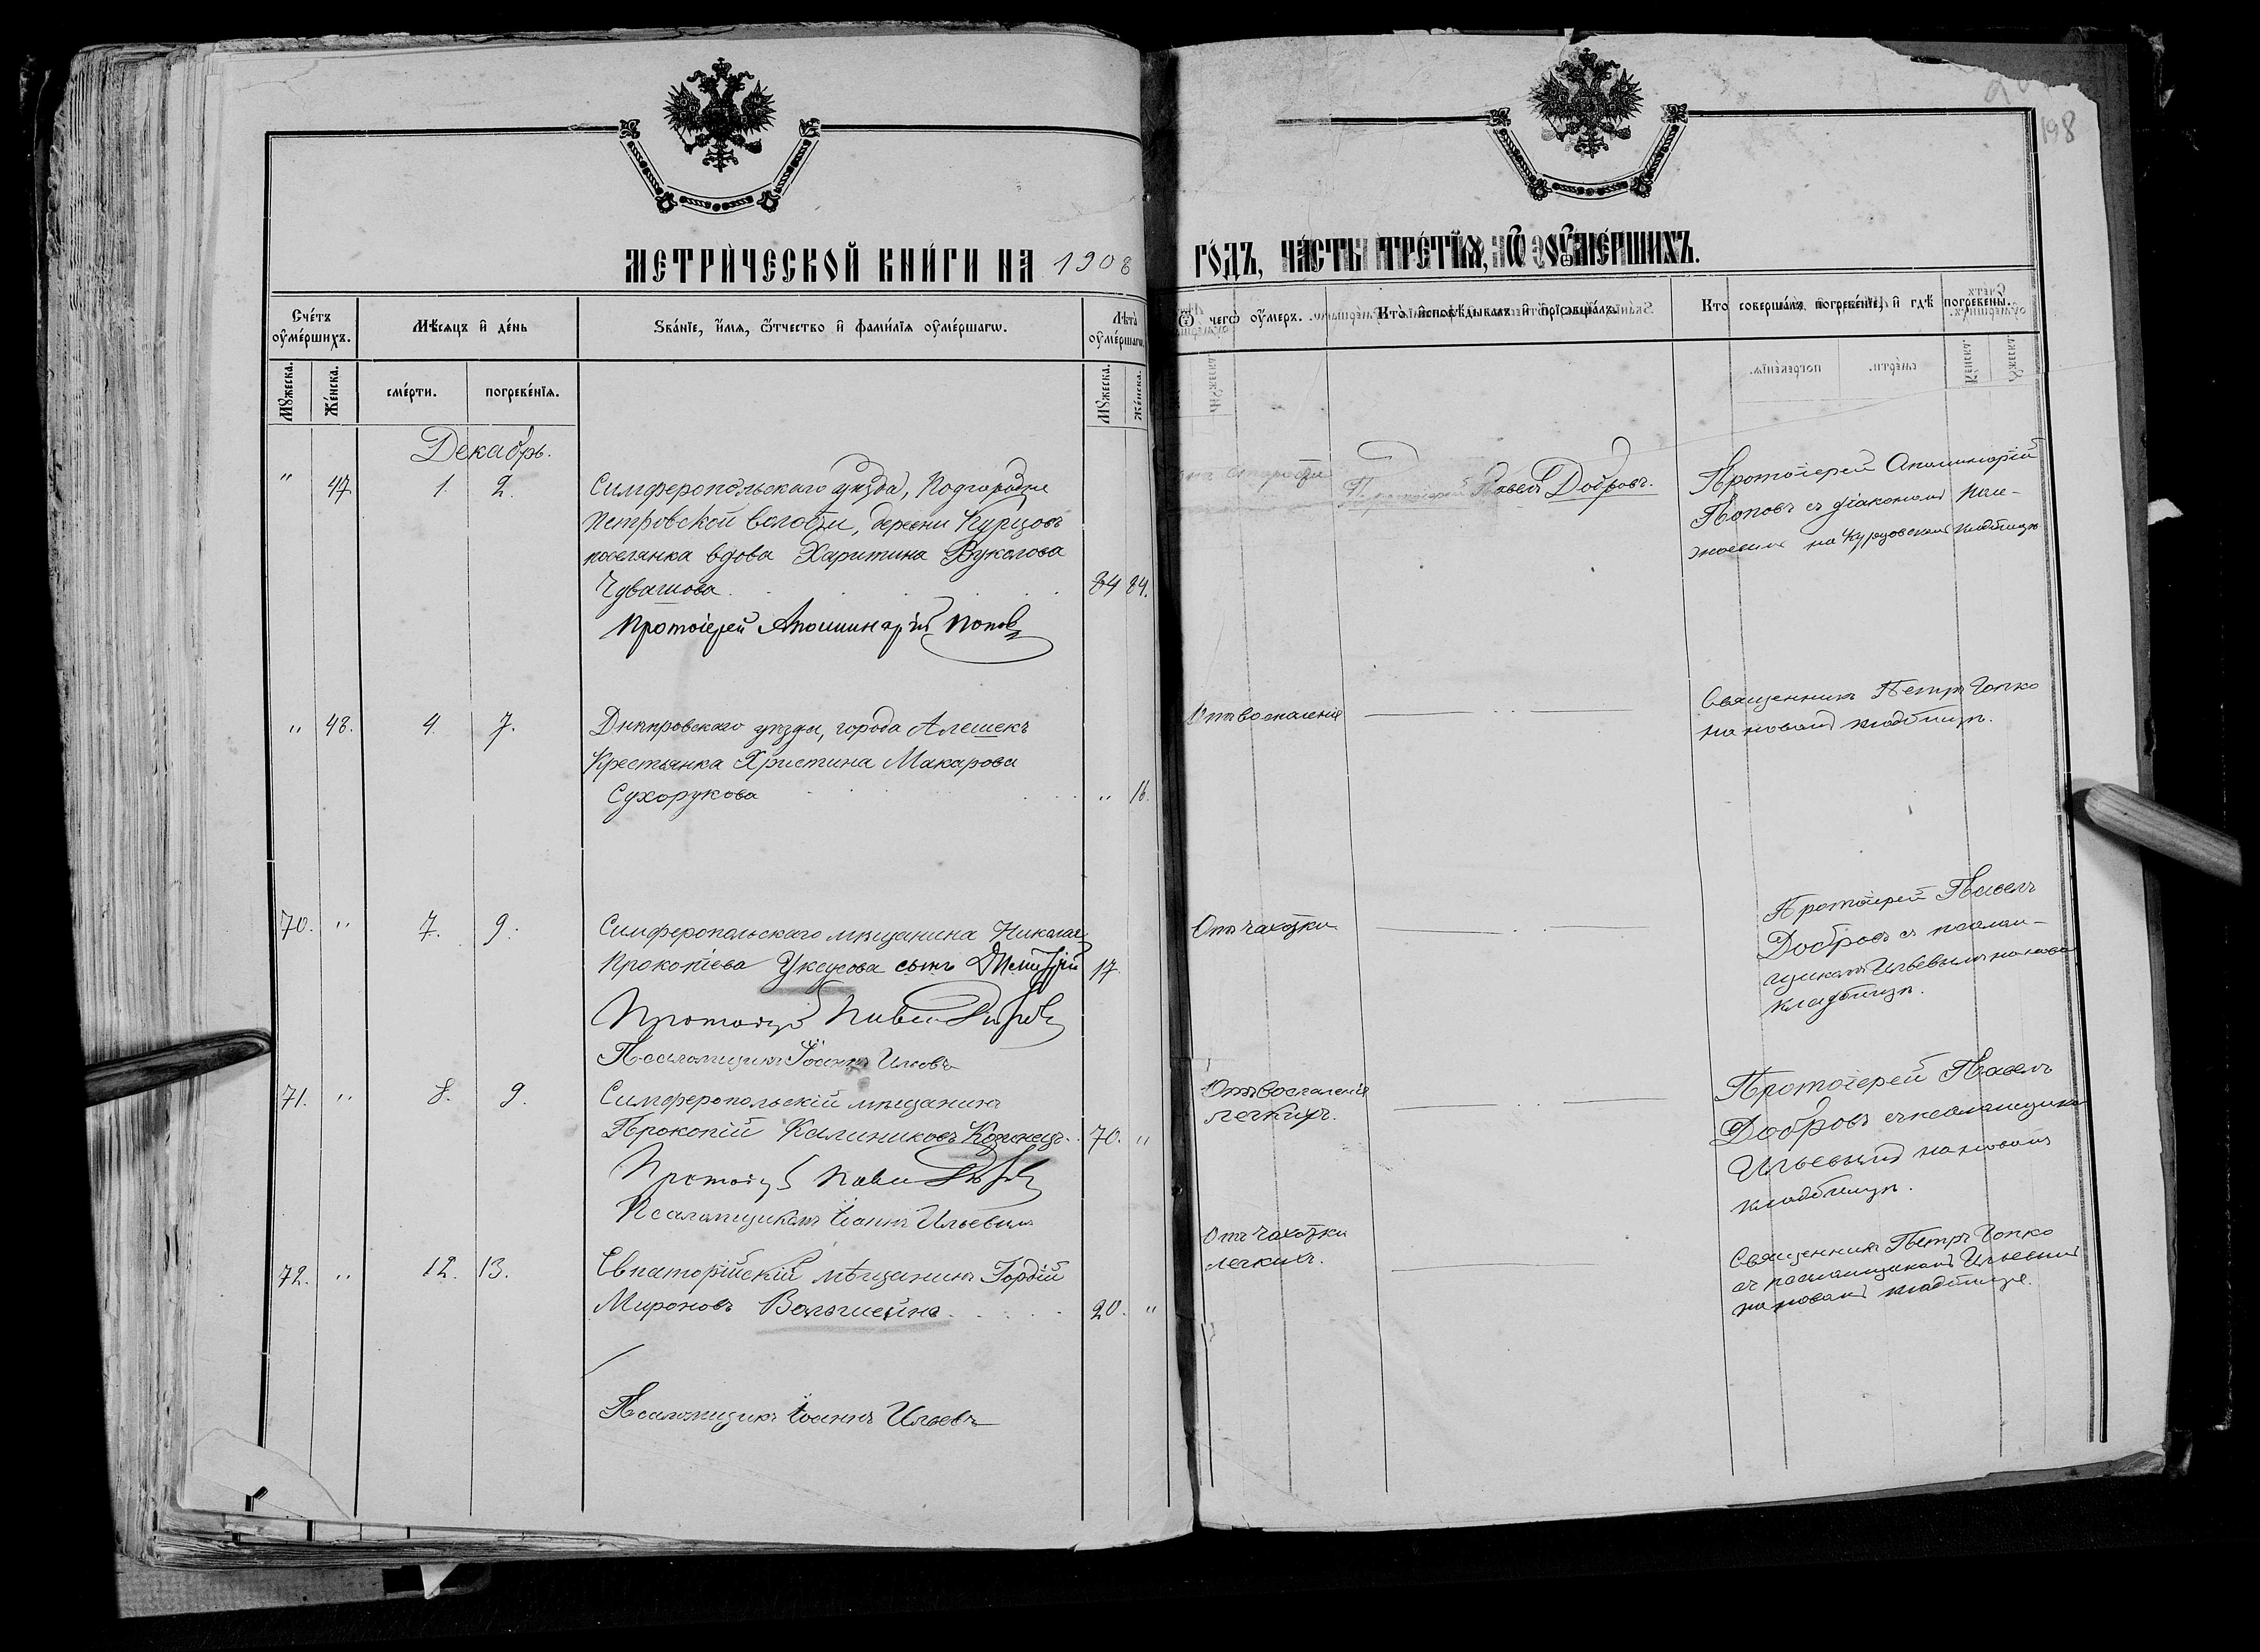 МЕТРИЧЕСКОЙ КНИГИ НА 1908
Счетъ оумершихъ.
Мѣсяцъ и день
Званіе, имя, отчество и фамилія оумершагω.
Лѣта оумершагω.
Мужеска.
Женска.
смерти.
погребенія.
Мужеска.
Женска.
Декабрь.
" 47 1. 2. Симферопольскаго уѣзда, Подгородне
Петровской волости, деревни Курцовъ
поселянка вдова Харитина Вуколова
Чувашова 84 84.
Протоіерей Аполлинарій Попов
" 48. 4. 7. Днѣпровскаго уѣзда, города Алешекъ
Крестьянка Христина Макарова
Сухорукова " 16.
70. " 7. 9. Симферопольскаго мѣщанина Николая
Прокопіева Уксусова сынъ Дмитрій 17
Протоіер Павел Добров
Псаломщикъ Іоаннъ
71. " 8. 9. Симферопольскій мѣщанинъ
Прокопій Калиниковъ 70. "
Протоіер Павел Добров
Псаломщикъ Іоаннъ
72. " 12. 13. Евпаторійскій мѣщанинъ Гордій
Мироновъ 20. "
Псаломщикъ Іоаннъ Ильевъ
198
ГОДЪ, ЧАСТЬ ТРЕТІЯ, Ѿ ОУМЕРШИХЪ.
Ѿ чегω оумеръ.
Кто исповѣдывалъ и пріобщалъ.
Кто совершалъ погребеніе, и гдѣ погребены.
старости
Протоіерей Павелъ Добровъ.
Протоіерей Аполлинарій
Поповъ съ діакономъ
на Курцовскомъ кладбищѣ
Отъ воспаленія
Священникъ Петръ Гопко
на новомъ кладбищѣ.
Отъ чахотки
Протоіерей Павелъ
Добровъ съ псалом-
щикомъ Ильевымъ на новом
кладбищѣ.
Отъ воспаленія
легкихъ.
Протоіерей Павелъ
Добровъ съ псаломщиком
Ильевымъ на новомъ
кладбищѣ.
Отъ чахотки
легкихъ.
Священникъ Петръ Гопко
съ псаломщикомъ Ильевымъ
на новомъ кладбищѣ.